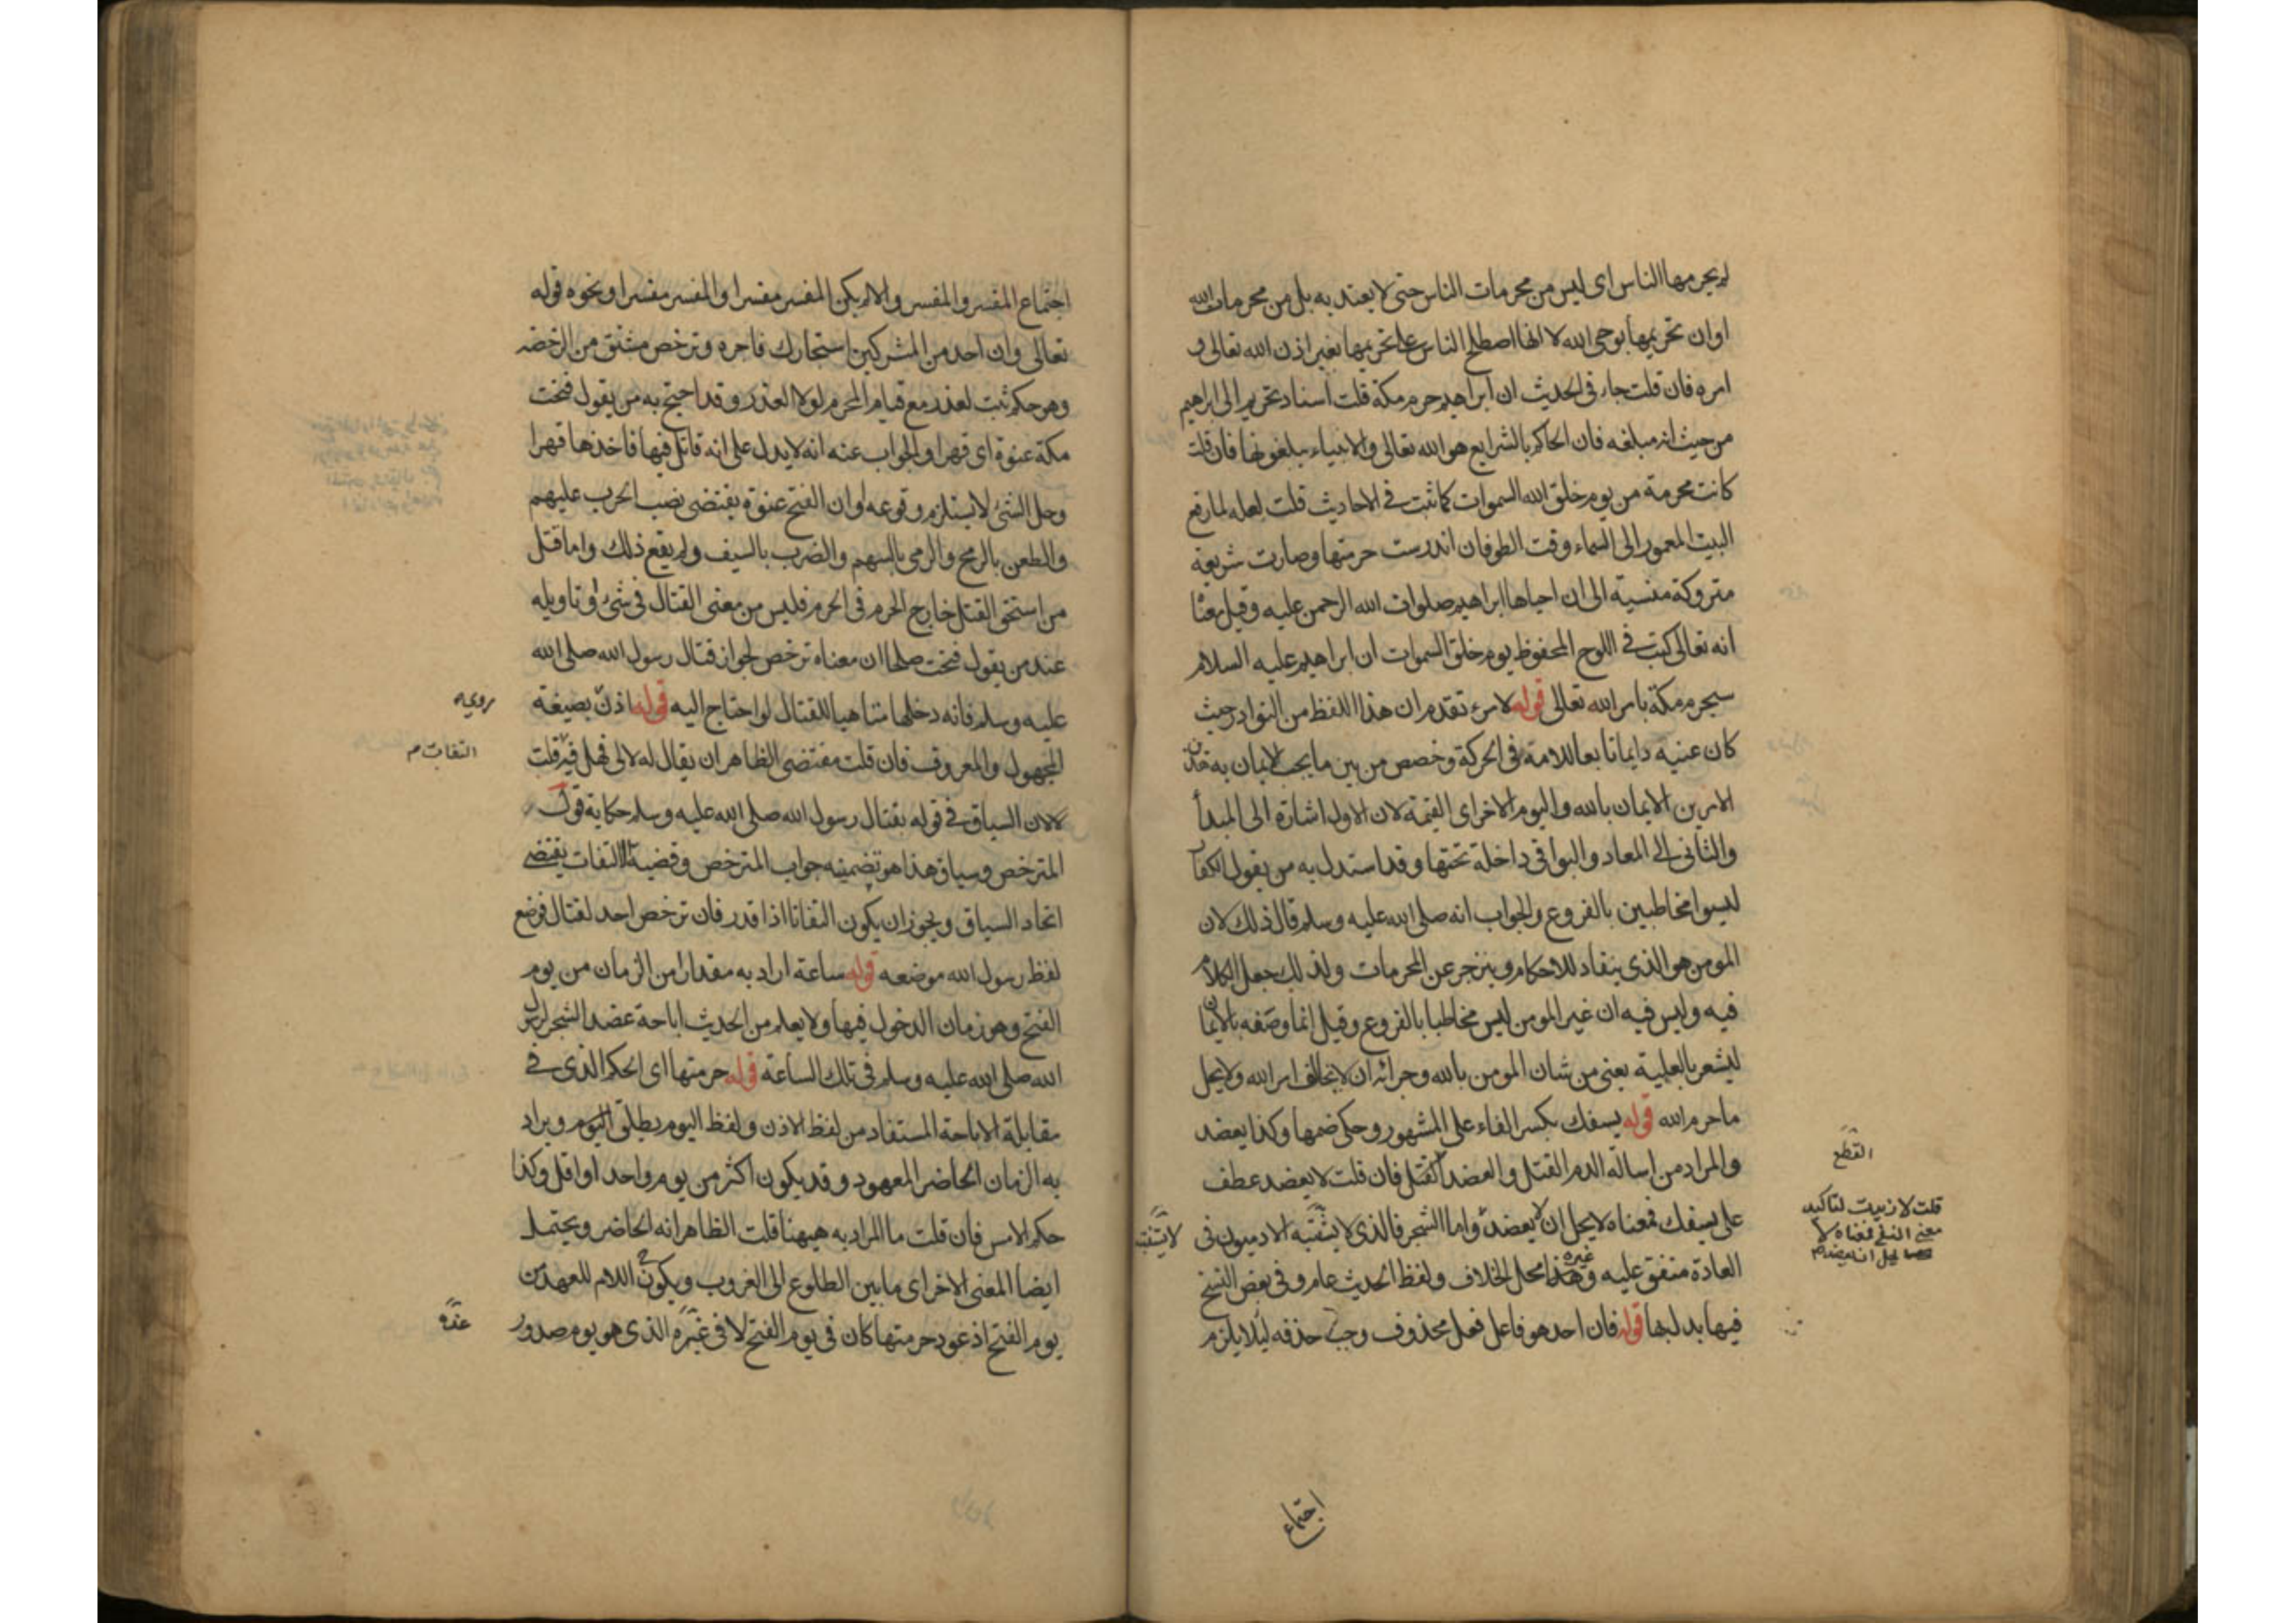 لم يحرمها الناس اى ليس من محرمات الناس حتى لا يعتد به بل من محرمات الله
او ان تحريمها بوحى الله لا انها اصطلح الناس على تحريمها بغير اذن الله تعالى و
امره فان قلت جاء فى الحديث ان ابراهيم حرم مكة قلت اسناد تحريم الى ابراهيم
من حيث انه مبلغه فان الحاكم بالشرايع هو الله تعالى والانبياء يبلغونها فان قلت
كانت محرمة من يوم خلق الله السموات كما ثبت فى الاحاديث قلت لعله لما رفع
البيت المعمور الى السماء وقت الطوفان اندرست حرمتها وصارت شريعة
متروكة منسية الى ان احياها ابراهيم صلوات الله الرحمن عليه وقيل معناه
انه تعالى كتب فى اللوح المحفوظ يوم خلق السموات ان ابراهيم عليه السلام
سيحرم مكة بامر الله تعالى قوله لامرء تقدم ان هذا اللفظ من النوادر حيث
كان عينه دايما تابعا للامه فى الحركة وخصص من بين ما يجب الايمان به هذين
الامرين الايمان بالله واليوم الاخر اى القيمة لان الاول اشارة الى المبدأ
والثانى الى المعاد والبواقى داخلة تحتها وقد استدل به من يقول الكفار
ليسوا مخاطبين بالفروع والجواب انه صلى الله عليه وسلم قال ذلك لان
المومن هو الذى ينقاد للاحكام وينزجر عن المحرمات ولذلك جعل الكلام
فيه وليس فيه ان غير المومن ليس مخاطبا بالفروع وقيل انما وصفه بالايمان
ليشعر بالعلية يعنى من شان المومن بالله وجزائه ان لا يخالف امر الله ولا يحل
ما حرم الله قوله يسفك بكسر الفاء على المشهور وحكى ضمها وكذا يعضد
والمراد من اسالة الدم القتل والعضد القتل فان قلت لا يعضد عطف
القطع
على يسفك فمعناه لا يحل ان لا يعضد واما الشجر فالذى لا يثبته الادميون فى
قلت لا زيدت لتاكيد
معنى النفى فمعناه لا
يحل ان يعضد م
العادة متفق عليه وغيره هذا محل الخلاف ولفظ الحديث عام وفى بعض النسخ
فيها بدل بها قوله فان احد هو فاعل فعل محذوف وجب حذفه ليلا يلزم
اجتماع
اجتماع المفسر والمفسر والا لم يكن المفسر مفسرا والمفسر مفسرا ونحوه قوله
تعالى وان احد من المشركين استجارك فاجره وترخص مشتق من الرخصة
وهو حكم ثبت لعذر مع قيام المحرم لولا العذر وقد احتج به من يقول فتحت
مكة عنوة اى قهرا والجواب عنه انه لا يدل على انه قاتل فيها فاخذها قهرا
وحل الشئ لا يستلزم وقوعه او ان الفتح عنوة يقتضى نصب الحرب عليهم
والطعن بالرمح والرمى بالسهم والضرب بالسيف ولم يقع ذلك واما قتل
من استحق القتل خارج الحرم فى الحرم فليس من معنى القتال فى شئ او تاويله
عند من يقول فتحت صلحا ان معناه ترخص لجواز قتال رسول الله صلى الله
عليه وسلم فانه دخلها متاهبا للقتال لو احتاج اليه قوله اذن بصيغة
المجهول والمعروف فان قلت مقتضى الظاهر ان يقال له لا لى فهل فيه قلت
التفات م
لا لان السياق فى قوله بقتال رسول الله صلى الله عليه وسلم حكاية قول
المترخص وسياق هذا هو تضمينه جواب المترخص وقضية الالتفات يقتضى
اتحاد السياق ويجوز ان يكون التفاتا اذا قدر فان ترخص احد لقتال فوضع
لفظ رسول الله موضعه قوله ساعة اراد به مقدارا من الزمان من يوم
الفتح وهو زمان الدخول فيها ولا يعلم من الحديث اباحة عضد الشجر لرسول
الله صلى الله عليه وسلم فى تلك الساعة قوله حرمتها اى الحكم الذى فى
مقابلة الاباحة المستفاد من لفظ الاذن ولفظ اليوم يطلق اليوم ويراد
به الزمان الحاضر المعهود وقد يكون اكثر من يوم واحد او اقل وكذا
حكم الامس فان قلت ما المراد به هيهنا قلت الظاهر انه الحاضر ويحتمل
ايضا المعنى الاخر اى ما بين الطلوع الى الغروب ويكون ح اللام للعهد من
يوم الفتح اذ عود حرمتها كان فى يوم الفتح لا فى غيره الذى هو يوم صدور